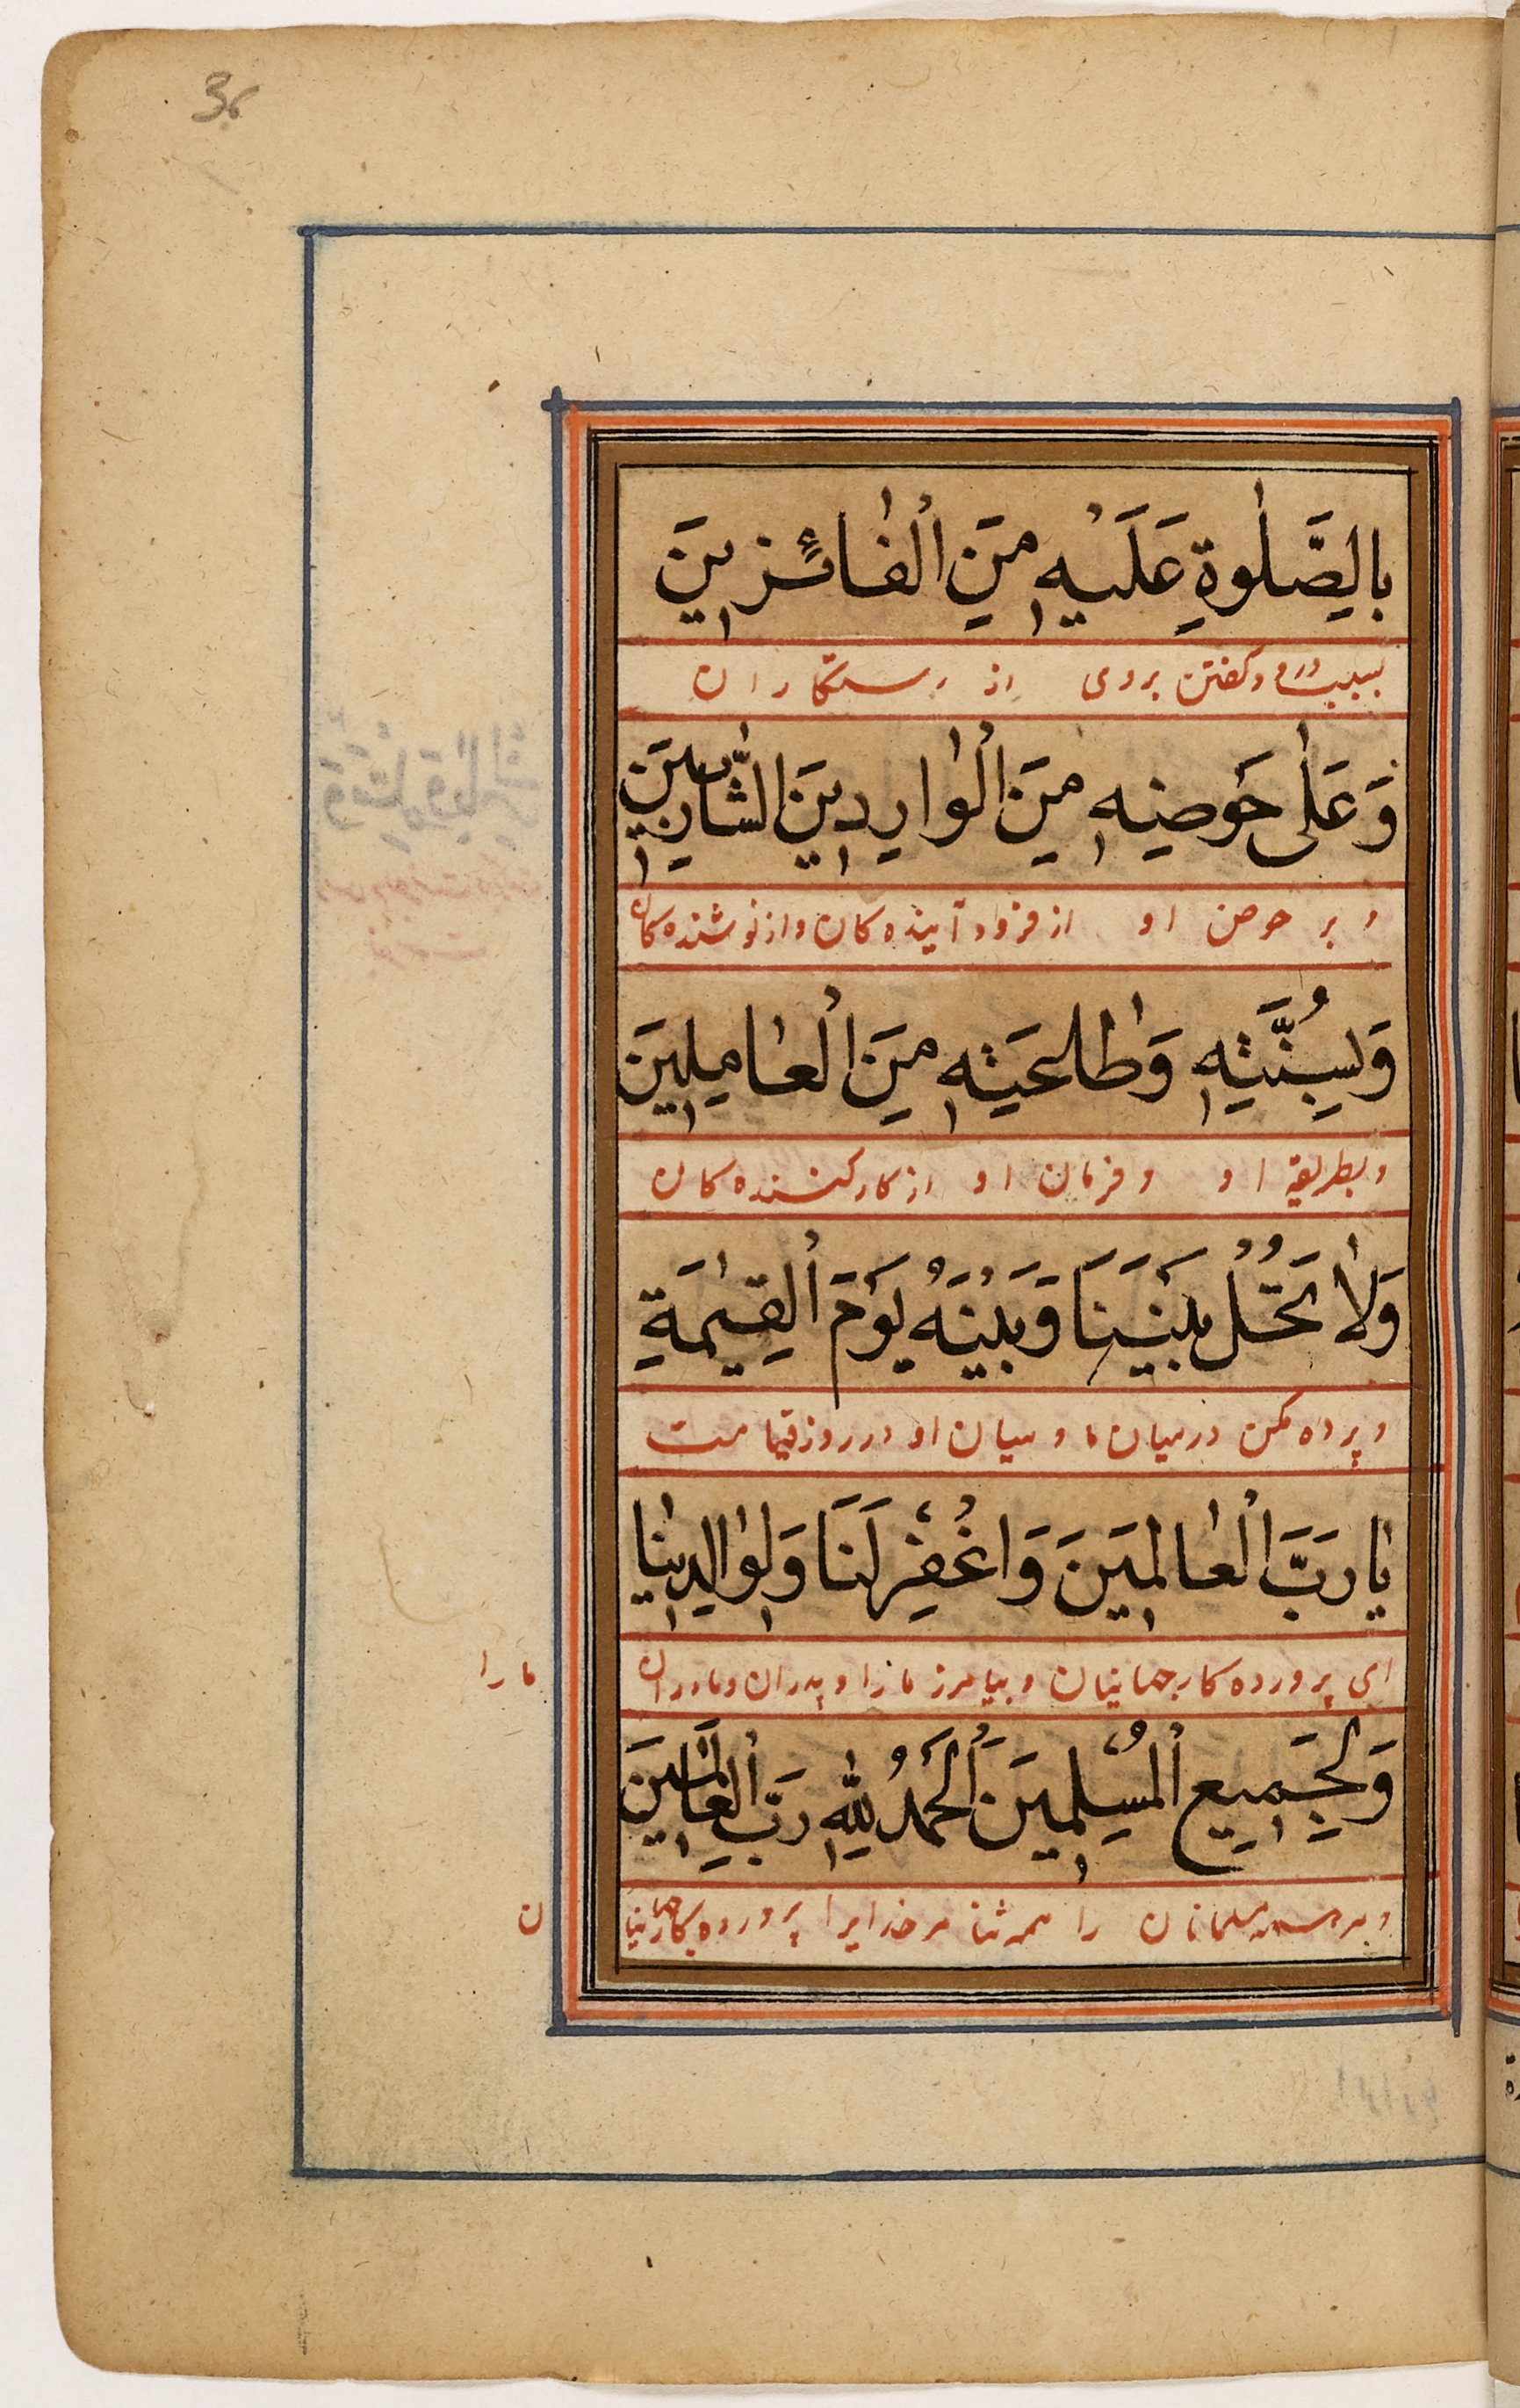 36
بِالصَّلٰوةِ عَلَيْهِ مِنَ الْفٰائِزِينَ
بسبب درود گفتن بروی از رستگاران
وَعَلٰى حَوْضِهِ مِنَ الْوٰارِدِينَ الشّٰارِبِينَ
و بر حوض او از فرود آینده کان و از نوشنده کان
وَبِسُنَّتِهِ وَطٰاعَتِهِ مِنَ الْعٰامِلِينَ
و بطریقه او و فرمان او از کار کننده کان
وَلاٰ تَحُلْ بَيْنَنَا وَبَيْنَهُ يَوْمَ الْقِيٰمَةِ
و پرده مکن در میان ما و میان او در روز قیامت
يٰا رَبَّ الْعٰالَمِينَ وَاغْفِرْ لَنَا وَلِوٰالِدِينٰا
ای پرورده کار جهانیان و بیامرز ما را و پدران و مادران ما را
وَلِجَمِيعِ الْمُسْلِمِينَ اَلْحَمْدُ لِلّٰهِ رَبِّ الْعٰالَمِينَ
و مسلمانان را همه ثنا مر خدایرا پرورده کار جهانیان